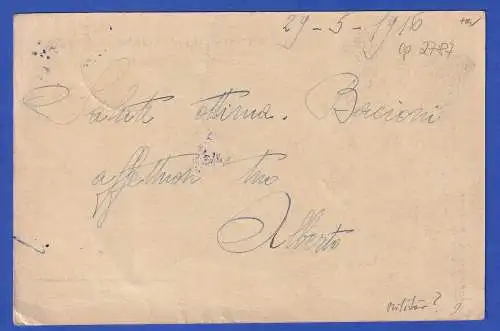 29-5-1916
cp 2787
Salute ottima. Bacioni
affettuosi tuo
Alberto
militär?